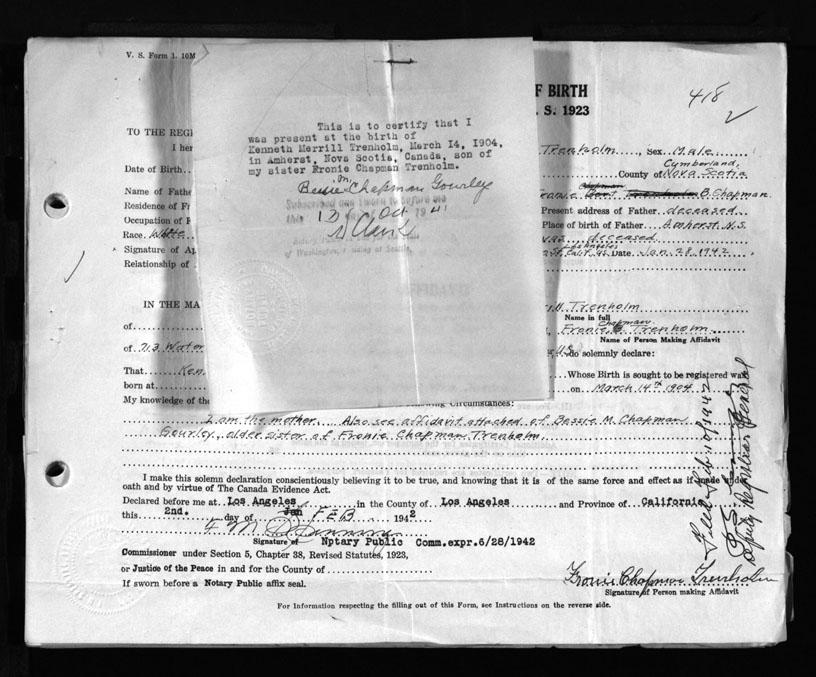 V. S. Form 1. 10M
F BIRTH
S. 1923
418
TO THE REGI
I her
Trenholm, Sex Male
Date of Birth
Cumberland,
County of Nova Scotia
Name of Fathe
Chapman
B. Chapman
Residence of F
Present address of Father deceased
Occupation of F
Place of birth of Father Amherst, N.S.
Race White
was deceased
Signature of Ap
Los Angeles
Calif. US Date Jan. 28, 1942
Relationship of
This is to certify that I
was present at the birth of
Kenneth Merrill Trenholm, March 14, 1904,
in Amherst, Nova Scotia, Canada, son of
my sister Fronie Chapman Trenholm.
M
Bessie Chapman Gourley
Subscribed and sworn to before me
this 13 Oct. 1941
of Washington, residing at Seattle.
IN THE MA
H Trenholm
Name in full
of
Chapman
Fronie Trenholm
Name of Person Making Affidavit
of 713 Water
do solemnly declare:
That Ken
Whose Birth is sought to be registered was
born at
on March 14th 1904
My knowledge of the
following Circumstances:
I am the mother. Also see affidavit attached of Bessie M. Chapman
Gourley, older sister of Fronie Chapman Trenholm.
I make this solemn declaration conscientiously believing it to be true, and knowing that it is of the same force and effect as if made under
oath and by virtue of The Canada Evidence Act.
Declared before me at Los Angeles in the County of Los Angeles and Province of California
this 2nd. day of Jan FEB 1942
Signature of Notary Public Comm.expr.6/28/1942
Commissioner under Section 5, Chapter 38, Revised Statutes, 1923,
or Justice of the Peace in and for the County of
If sworn before a Notary Public affix seal.
Fronie Chapman Trenholm
Signature of Person making Affidavit
For Information respecting the filling out of this Form, see Instructions on the reverse side.
Filed Feb. 10/1942
Deputy Registrar General